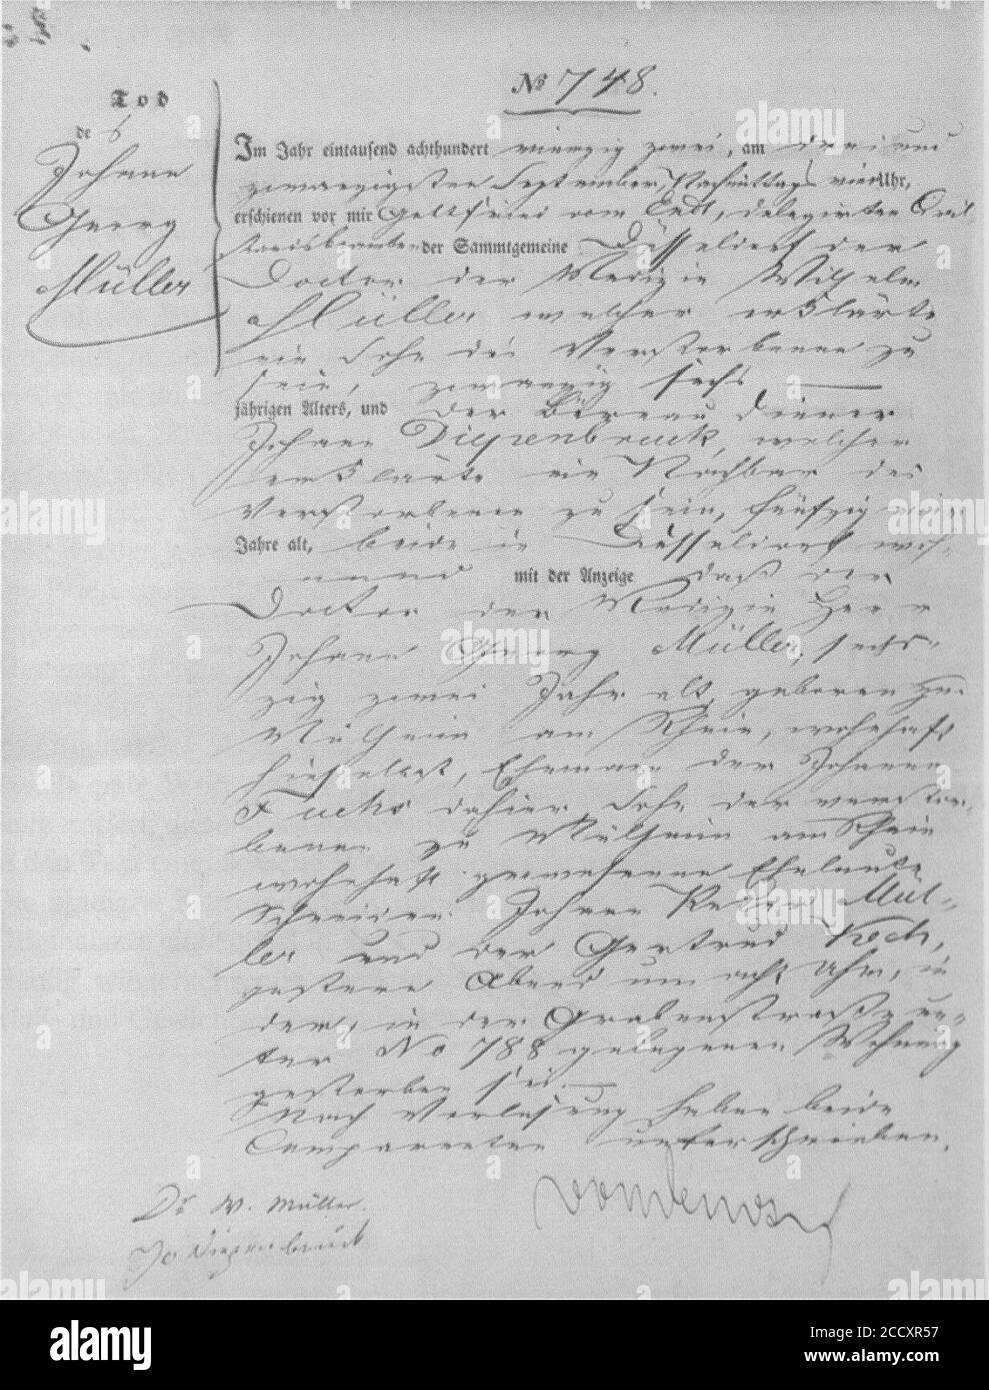 № 748.
Tod
des
Johann
Georg
Müller
Im Jahr eintausend achthundert vierzig zwei, am drei und
zwanzigsten September, Nachmittags vier Uhr,
erschienen vor mir vom Endt, delegirten Civil
standsbeamten der Sammtgemeine Düsseldorf der
Doctor der Medizin Wilhelm
Müller welcher erklärte
ein Sohn des Verstorbenen zu
sein, zwanzig sechs
jährigen Alters, und der Büreau Diener
Johann Diepenbruck, welcher
erklärte ein Nachbar des
Verstorbenen zu sein, fünfzig
Jahre alt, beide in Düsseldorf woh-
nend mit der Anzeige daß der
Doctor der Medizin Herr
Johann Georg Müller, sechs-
zig zwei Jahr alt, geboren zu
Mülheim am Rhein, wohnhaft
hieselbst, Ehemann der Johanna
Fuchs dahier Sohn der verstor-
benen zu Mülheim am Rhein
wohnhaft gewesenen Eheleute
Schneider Johann Mül-
ler und der Gertrud Koch,
gestern Abend um acht Uhr, in
der, in der Grabenstraße un-
ter No 788 gelegenen Wohnung
gestorben sei.
Nach Verlesung haben beide
Comparenten unterschrieben.
Dr W. Müller.
Jo Diepenbruck
vom Endt
alamy
2CCXR57
www.alamy.com